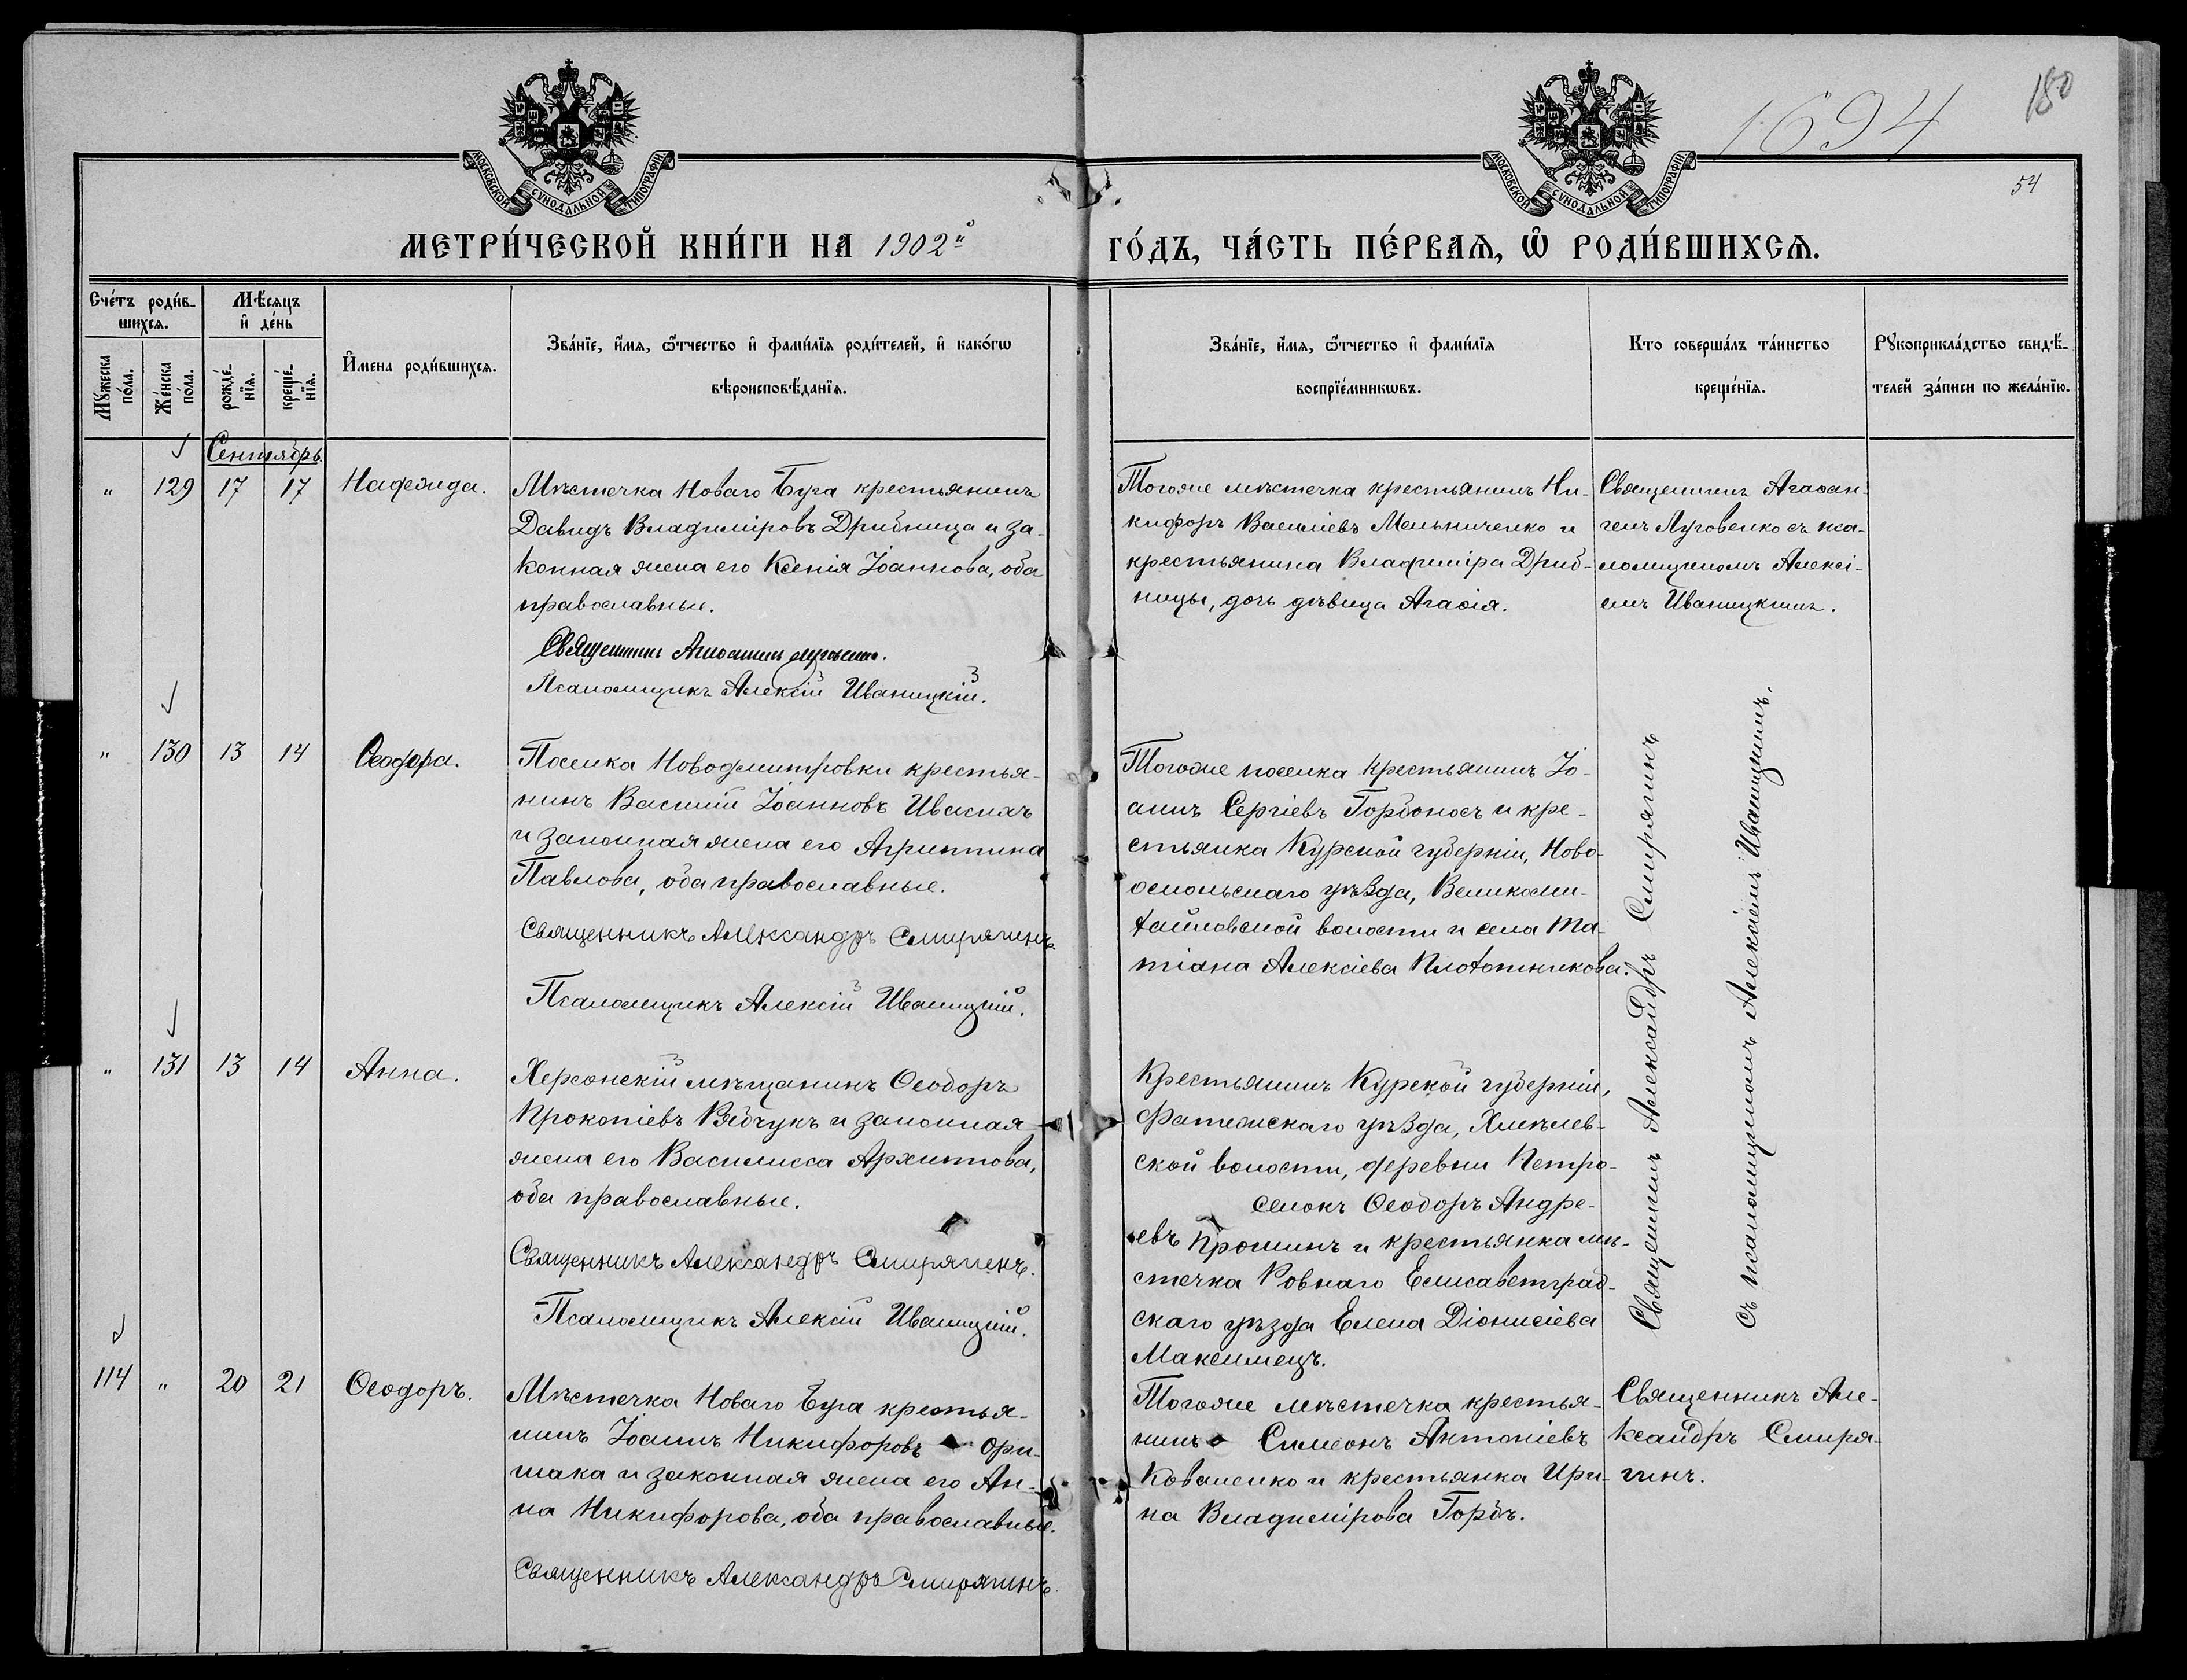 180
1694
54
МОСКОВСКОЙ СѴНОДАЛЬНОЙ ТИПОГРАФІИ
МОСКОВСКОЙ СѴНОДАЛЬНОЙ ТИПОГРАФІИ
МЕТРИ́ЧЕСКОЙ КНИ́ГИ НА 1902й ГО́ДЪ, ЧА́СТЬ ПЕ́РВАѦ, Ѡ РОДИ́ВШИХСѦ.
Сче́тъ роди́в-
шихсѧ.
Мѣ́сѧцъ
и҆ де́нь
Мꙋ́жеска
по́ла.
Же́нска
по́ла.
рожде́-
нїѧ.
креще́-
нїѧ.
И҆мена роди́вшихсѧ.
Зва́нїе, и҆́мѧ, ѻ҆́тчество и҆ фами́лїѧ роди́телей, и҆ како́гѡ
вѣроисповѣ́данїѧ.
Зва́нїе, и҆́мѧ, ѻ҆́тчество и҆ фами́лїѧ
воспрїе́мникѡвъ.
Кто соверша́лъ та́инство
креще́нїѧ.
Рꙋкоприкла́дство свидѣ́-
телей за́писи по жела́нїю.
Сентябрь.
" 129 17 17 Надежда.
Мѣстечка Новаго Буга крестьянинъ
Давидъ Владиміровъ Дрибница и за-
конная жена его Ксенія Іоаннова, оба
православные.
Священникъ Агаѳангелъ Луговенко.
Псаломщикъ Алексій Иваницкій.
Тогоже мѣстечка крестьянинъ Ни-
кифоръ Василіевъ Мельниченко и
крестьянина Владиміра Дриб-
ницы, дочь дѣвица Агаѳія.
Священникъ Агаѳан-
гелъ Луговенко съ пса-
ломщикомъ Алексі-
емъ Иваницкимъ.
" 130 13 14 Ѳеодора.
Поселка Новодмитровки крестья-
нинъ Василій Іоанновъ Ивасихъ
и законная жена его Агриппина
Павлова, оба православные.
Священникъ Александръ Смирягинъ
Псаломщикъ Алексій Иваницкій.
Тогоже поселка крестьянинъ Іо-
аннъ Сергіевъ Горбоносъ и кре-
стьянка Курской губерніи, Ново-
оскольскаго уѣзда, Великоми-
хайловской волости и села Та-
тіана Алексіева Плотникова.
Священникъ Александръ Смирягинъ
съ псаломщикомъ Алексіемъ Иваницкимъ.
" 131 13 14 Анна.
Херсонскій мѣщанинъ Ѳеодоръ
Прокопіевъ Рябчукъ и законная
жена его Василисса Архипова,
оба православные.
Священникъ Александръ Смирягинъ.
Псаломщикъ Алексій Иваницкій.
Крестьянинъ Курской губерніи,
Фатежскаго уѣзда, Хмѣлев-
ской волости, деревни Петро-
селокъ Ѳеодоръ Андре-
евъ Пронинъ и крестьянка мѣ-
стечка Ровнаго Елисаветград-
скаго уѣзда Елена Діонисіева
Максимецъ.
114 " 20 21 Ѳеодоръ.
Мѣстечка Новаго Буга крестья-
нинъ Іоаннъ Никифоровъ Ори-
шака и законная жена его Ан-
на Никифорова, оба православные.
Священникъ Александръ Смирягинъ.
Тогоже мѣстечка крестья-
нинъ Симеонъ Антоніевъ
Коваленко и крестьянка Ири-
на Владимірова Горбъ.
Священникъ Але-
ксандръ Смиря-
гинъ.